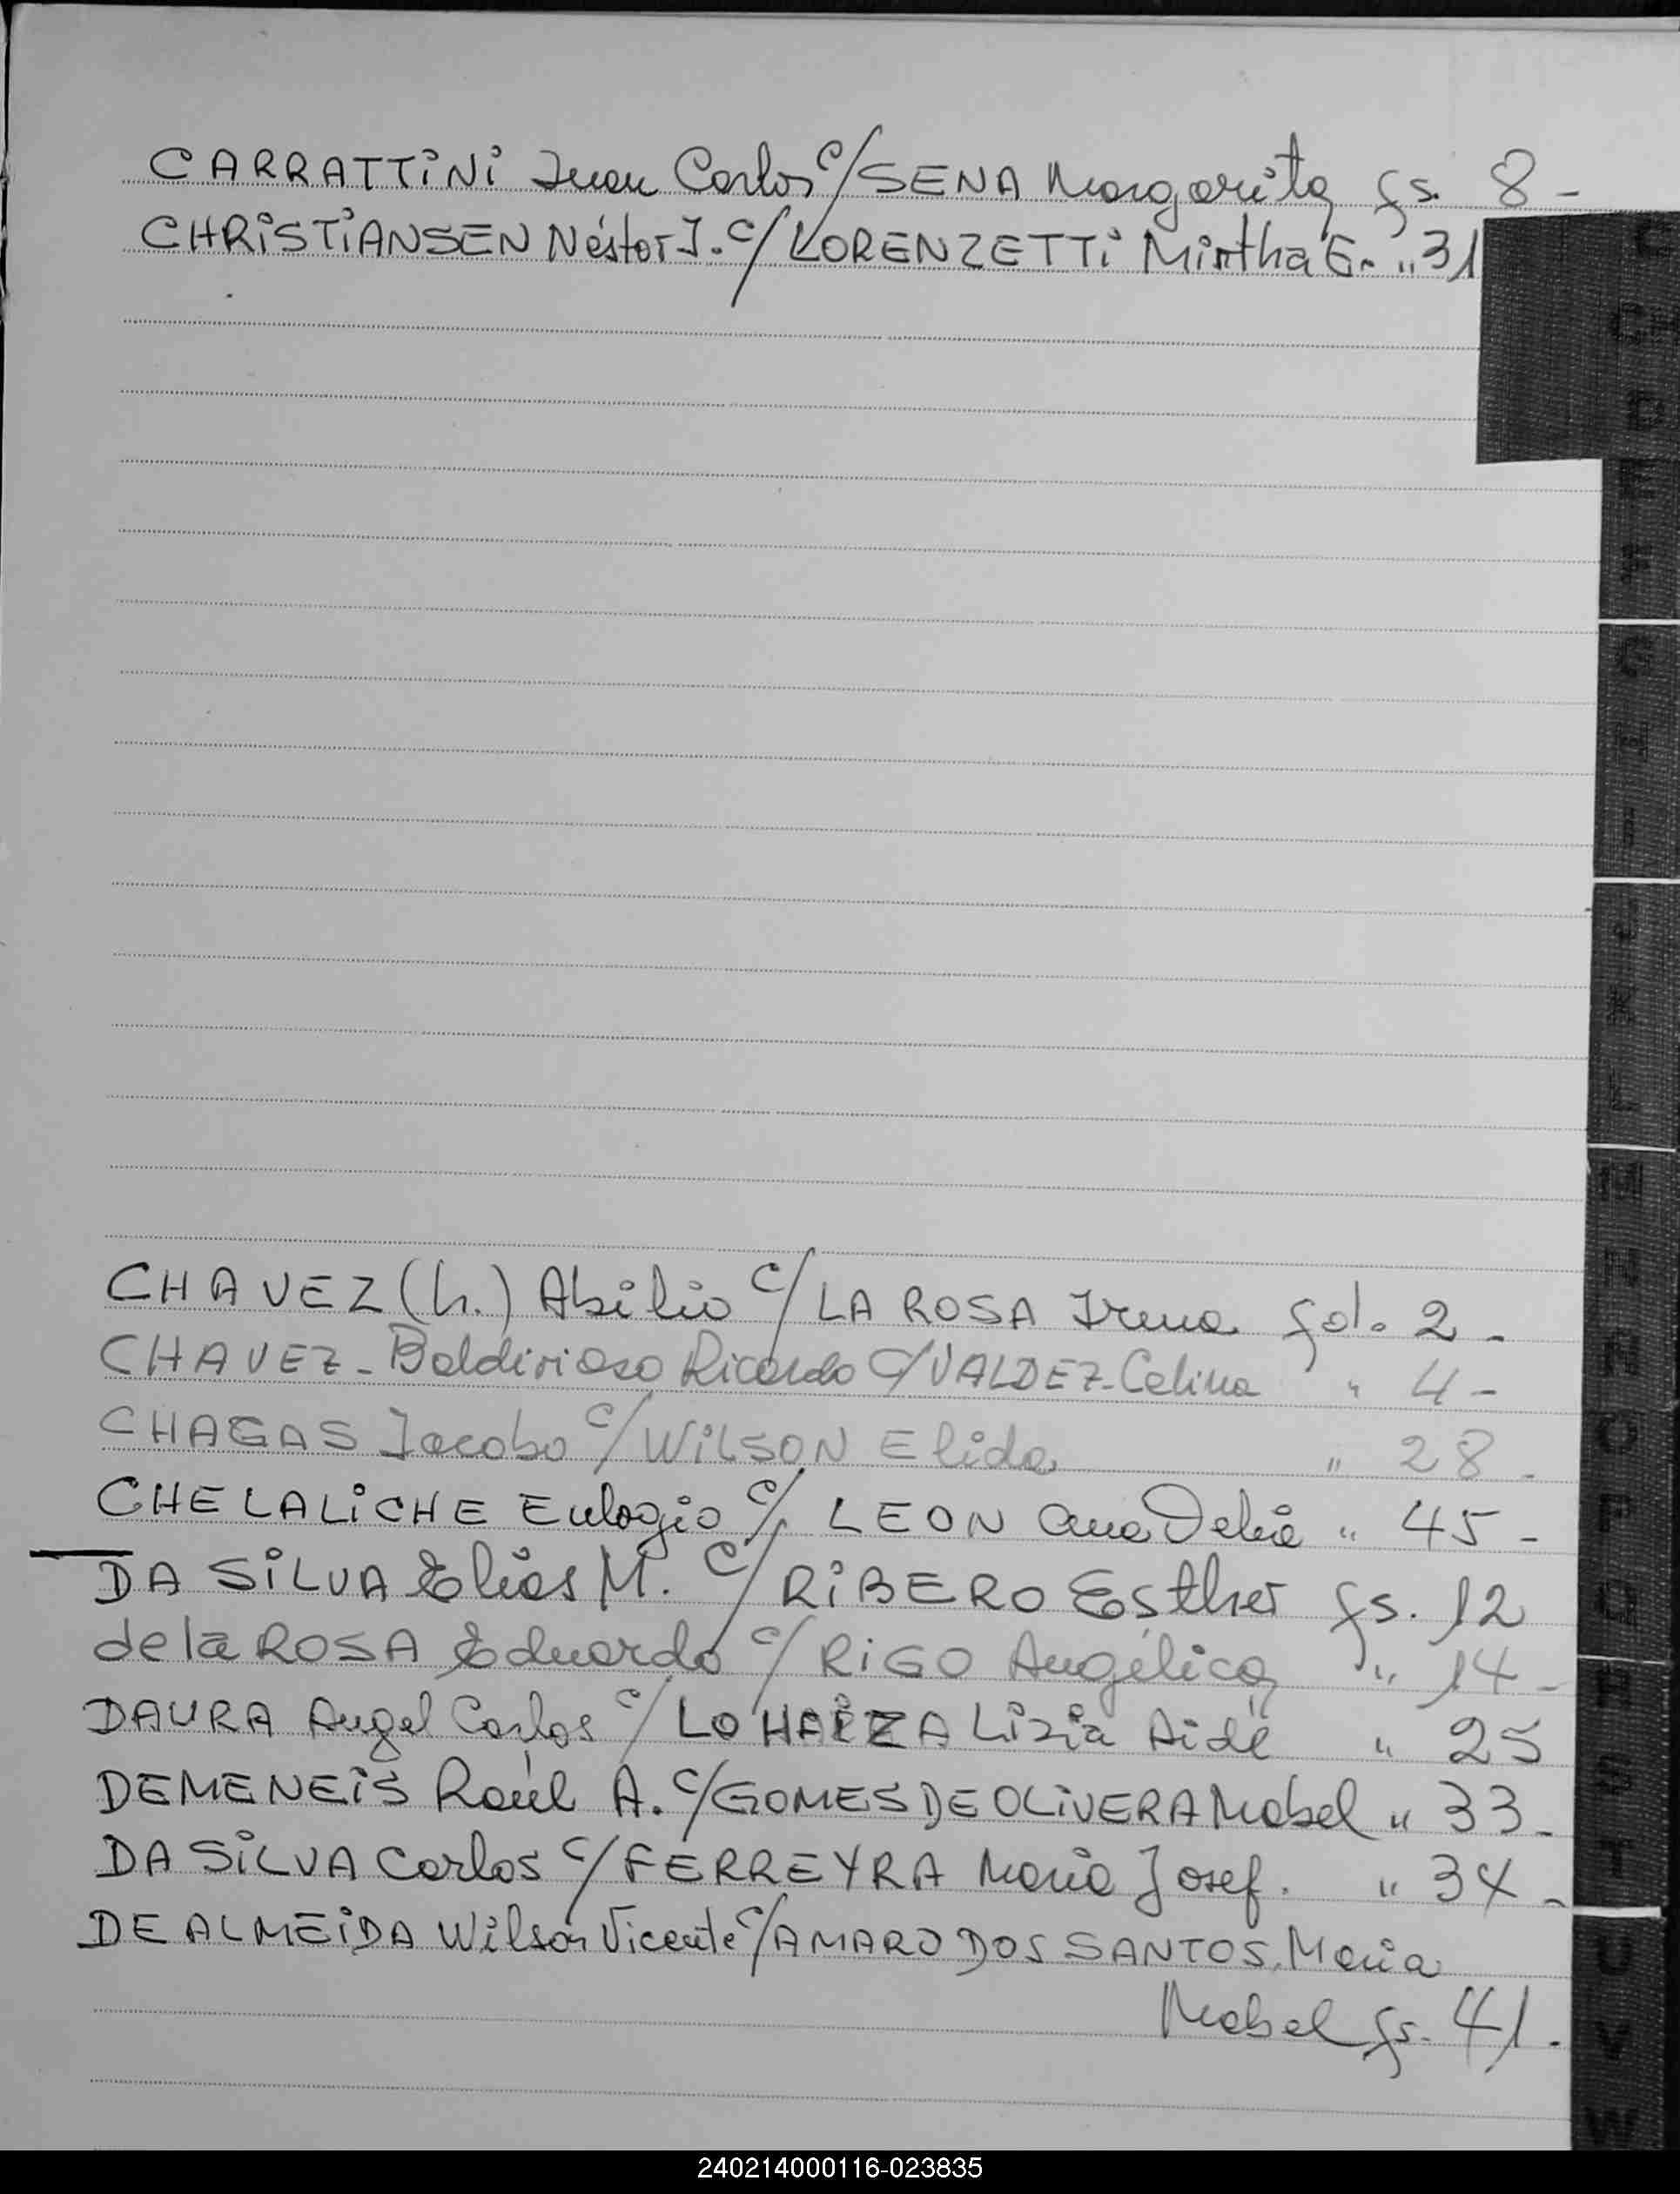 CARRATTiNi Juan Carlos c/ SENA Margarita fs. 8 -
CHRiSTiANSEN Néstor J. c/ LORENZETTi Mirtha E. " 31
CHAVEZ (h.) Abilio c/ LA ROSA Irena fol. 2 -
CHAVEZ - Ricardo c/ VALDEZ - Celina " 4 -
CHAGAS Jacobo c/ WiLSON Elida " 28 -
CHELALiCHE Eulogio c/ LEON Ana Delia " 45 -
DA SiLVA Elías M. c/ RiBERO Esther fs. 12
de la ROSA Eduardo c/ RiGO Angélica " 14 -
DAURA Angel Carlos c/ Aidé " 25
DEMENEiS Raúl A. c/ GOMES DE OLiVERA Mabel " 33 -
DA SiLVA Carlos c/ FERREYRA María Josef. " 34 -
DE ALMEiDA Wilson Vicente c/ AMARO DOS SANTOS, María
Mabel fs. 41.
C
D
G
J
K
L
M
N
O
P
Q
S
T
U
V
W
240214000116-023835